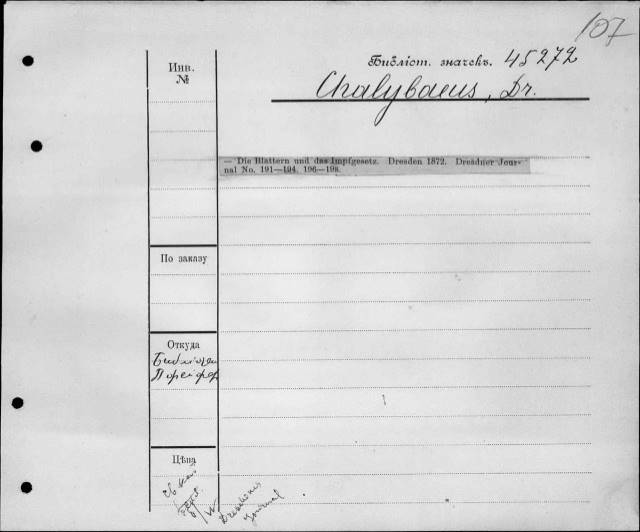 107
Библіот. значекъ. 45272
Инв. №
Chalybaeus, Dr.
— Die Blattern und das Impfgesetz. Dresden 1872. Dresdner Jour-
nal No. 191—194. 196—198.
По заказу
Откуда
Цѣна
Journal